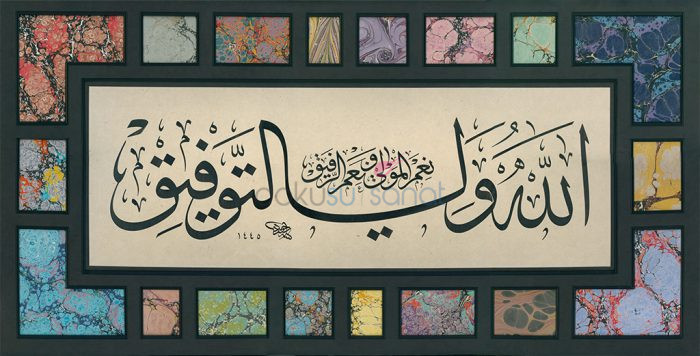 اللّٰهُ وَلِيُّ التَّوْفِيقِ
نعم المولى ونعم الرفيق
١٤٤٥
dokusu sanat